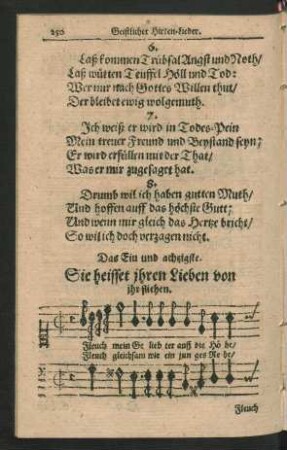 250 Geistlicher Hirten-Lieder.
6.
Laß kommen Trübsal Angst und Noth/
Laß wütten Teuffel Höll und Tod:
Wer nur nach Gottes Willen thut/
Der bleibet ewig wolgemuth.
7.
Ich weiß er wird in Todes-Pein
Mein treuer Freund und Beystand seyn;
Er wird erfüllen mit der That/
Was er mir zugesagt hat.
8.
Drumb wil ich haben gutten Muth/
Und hoffen auff das höchste Gutt;
Und wenn mir gleich das Hertze bricht/
So wil ich doch verzagen nicht.
Das Ein und achzigste.
Sie heisset jhren Lieben von
ihr fliehen.
Fleuch mein Ge lieb ter auff die Hö he/
Fleuch gleichsam wie ein jun ges Re he/
Fleuch